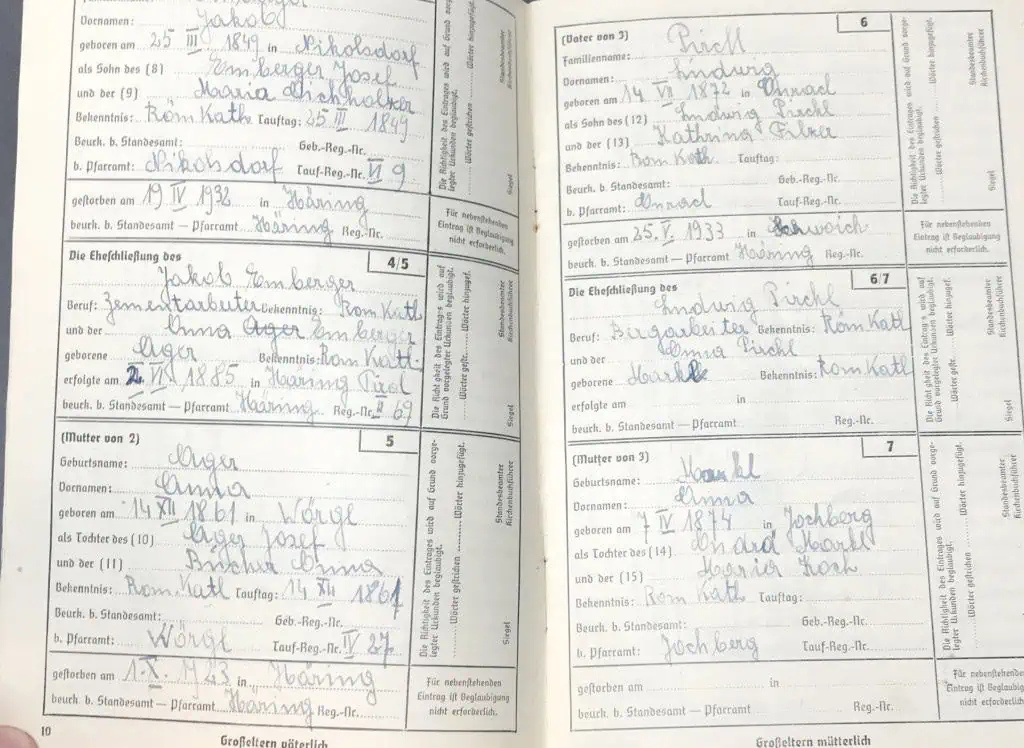 Vornamen: Jakob
geboren am 25 III 1849 in Nikolsdorf
als Sohn des (8) Emberger Josef
und der (9) Maria
Bekenntnis: Röm Kath. Tauftag: 25 III 1849
Beurk. b. Standesamt: Geb.-Reg.-Nr.
b. Pfarramt: Nikolsdorf Tauf-Reg.-Nr. VI 9
gestorben am 19 IV 1932 in Häring
beurk. b. Standesamt — Pfarramt Häring Reg.-Nr.
Die Richtigkeit des Eintrages wird auf Grund vorge-
legter Urkunden beglaubigt.
Wörter gestrichen Wörter hinzugefügt.
Standesbeamter
Kirchenbuchführer
Siegel
Für nebenstehenden
Eintrag ist Beglaubigung
nicht erforderlich.
Die Eheschließung des 4/5
Jakob Emberger
Beruf: Zementarbeiter Bekenntnis: Röm Kath
und der Anna Ager Emberger
geborene Ager Bekenntnis: Rom Kath.
erfolgte am 1885 in Häring Tirol
beurk. b. Standesamt — Pfarramt Häring Reg.-Nr. II 69
Die Richtigkeit des Eintrages wird auf
Grund vorgelegter Urkunden beglaubigt.
Wörter gestr. Wörter hinzugef.
Standesbeamter
Kirchenbuchführer
Siegel
(Mutter von 2) 5
Geburtsname: Ager
Vornamen: Anna
geboren am 14 XII 1861 in Wörgl
als Tochter des (10) Ager Josef
und der (11) Bücher Anna
Bekenntnis: Rom. Kath Tauftag: 14 XII 1861
Beurk. b. Standesamt: Geb.-Reg.-Nr.
b. Pfarramt: Wörgl Tauf-Reg.-Nr. IV 27
gestorben am 1.X. 1923 in Häring
beurk. b. Standesamt — Pfarramt Häring Reg.-Nr.
Die Richtigkeit des Eintrages wird auf Grund vorge-
legter Urkunden beglaubigt.
Wörter gestrichen Wörter hinzugefügt.
Standesbeamter
Kirchenbuchführer
Siegel
Für nebenstehenden
Eintrag ist Beglaubigung
nicht erforderlich.
10
Großeltern väterlich
(Vater von 3) 6
Familienname: Pirchl
Vornamen: Ludwig
geboren am 14 VII 1872 in
als Sohn des (12) Ludwig Pirchl
und der (13) Kathrina Filzer
Bekenntnis: Rom Kath Tauftag:
Beurk. b. Standesamt: Geb.-Reg.-Nr.
b. Pfarramt: Tauf-Reg.-Nr.
gestorben am 25. V. 1933 in Schwoich
beurk. b. Standesamt — Pfarramt Häring Reg.-Nr.
Die Richtigkeit des Eintrages wird auf Grund vorge-
legter Urkunden beglaubigt.
Wörter gestrichen Wörter hinzugefügt.
Standesbeamter
Kirchenbuchführer
Siegel
Für nebenstehenden
Eintrag ist Beglaubigung
nicht erforderlich.
Die Eheschließung des 6/7
Ludwig Pirchl
Beruf: Bergarbeiter Bekenntnis: Röm Kath
und der Anna Pirchl
geborene Markl Bekenntnis: Rom Kath
erfolgte am in
beurk. b. Standesamt — Pfarramt Reg.-Nr.
Die Richtigkeit des Eintrages wird auf
Grund vorgelegter Urkunden beglaubigt.
Wörter gestr. Wörter hinzugef.
Standesbeamter
Kirchenbuchführer
Siegel
(Mutter von 3) 7
Geburtsname: Markl
Vornamen: Anna
geboren am 7 IV 1874 in Jochberg
als Tochter des (14) Andrä Markl
und der (15) Maria Koch
Bekenntnis: Rom Kath Tauftag:
Beurk. b. Standesamt: Geb.-Reg.-Nr.
b. Pfarramt: Jochberg Tauf-Reg.-Nr.
gestorben am in
beurk. b. Standesamt — Pfarramt Reg.-Nr.
Die Richtigkeit des Eintrages wird auf Grund vorge-
legter Urkunden beglaubigt.
Wörter gestrichen Wörter hinzugefügt.
Standesbeamter
Kirchenbuchführer
Siegel
Für nebenstehenden
Eintrag ist Beglaubigung
nicht erforderlich.
Großeltern mütterlich